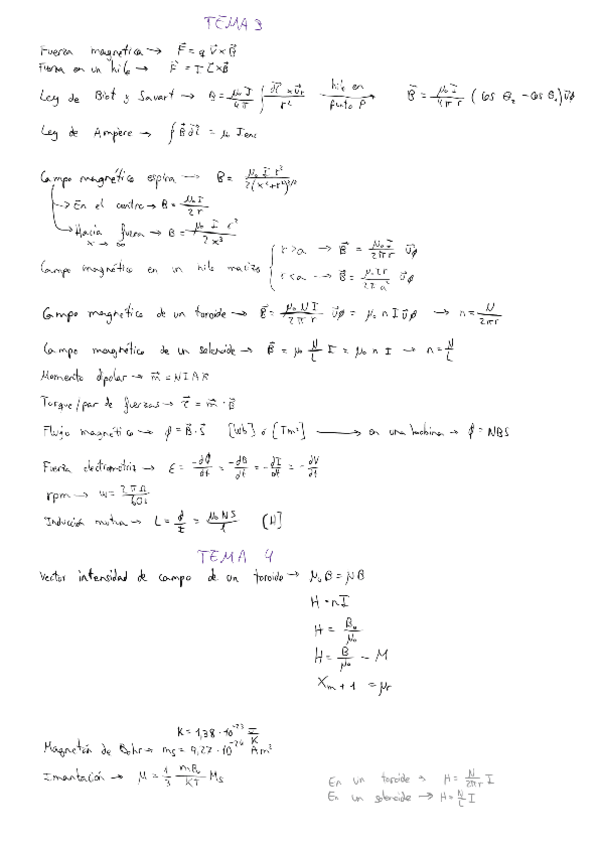 TEMA 3
Fuerza magnética → F⃗ = q v⃗ × B⃗
Fuerza en un hilo → F⃗ = I L⃗ × B⃗
Ley de Biot y Savart → B = μ₀ I / 4π ∫ dl⃗ × u⃗r / r² — hilo en punto P → B⃗ = μ₀ I / 4π r (cos θ₂ - cos θ₁) u⃗φ
Ley de Ampere → ∮ B⃗ dl⃗ = μ I enc
Campo magnético espira → B = μ₀ I r² / 2(x² + r²)^3/2
→ En el centro → B = μ₀ I / 2 r
→ Hacia fuera → B = μ₀ I r² / 2 x³
x → ∞
Campo magnético en un hilo macizo { r > a → B⃗ = μ₀ I / 2π r u⃗φ
r < a → B⃗ = u⃗φ
Campo magnético de un toroide → B⃗ = μ₀ N I / 2π r u⃗φ = μ₀ n I u⃗φ → n = N / 2πr
Campo magnético de un solenoide → B⃗ = μ₀ N/L I = μ₀ n I → n = N/L
Momento dipolar → m⃗ = N I A
Torque/par de fuerzas → τ⃗ = m⃗ · B⃗
Flujo magnético → φ = B⃗ · S⃗ [Wb] ó [Tm²] → en una bobina → φ = NBS
Fuerza electromotriz → ε = -dφ/dt = -dB/dt = -dI/dt = -dV/dt
rpm →
Inducción mutua → L = φ/I = [H]
TEMA 4
Vector intensidad de campo de un toroide → μ₀ B = μ B
H = n I
H = B₀ / μ₀
H = B / μ₀ - M
Xm + 1 = μr
K = 1,38 · 10⁻²³ J/K
Magnetón de Bohr → ms = 9,27 · 10⁻²⁴ A m²
Imantación → M = 1/3 mB₀ / KT Ms
En un toroide → H = N / 2πr I
En un solenoide → H = N/L I